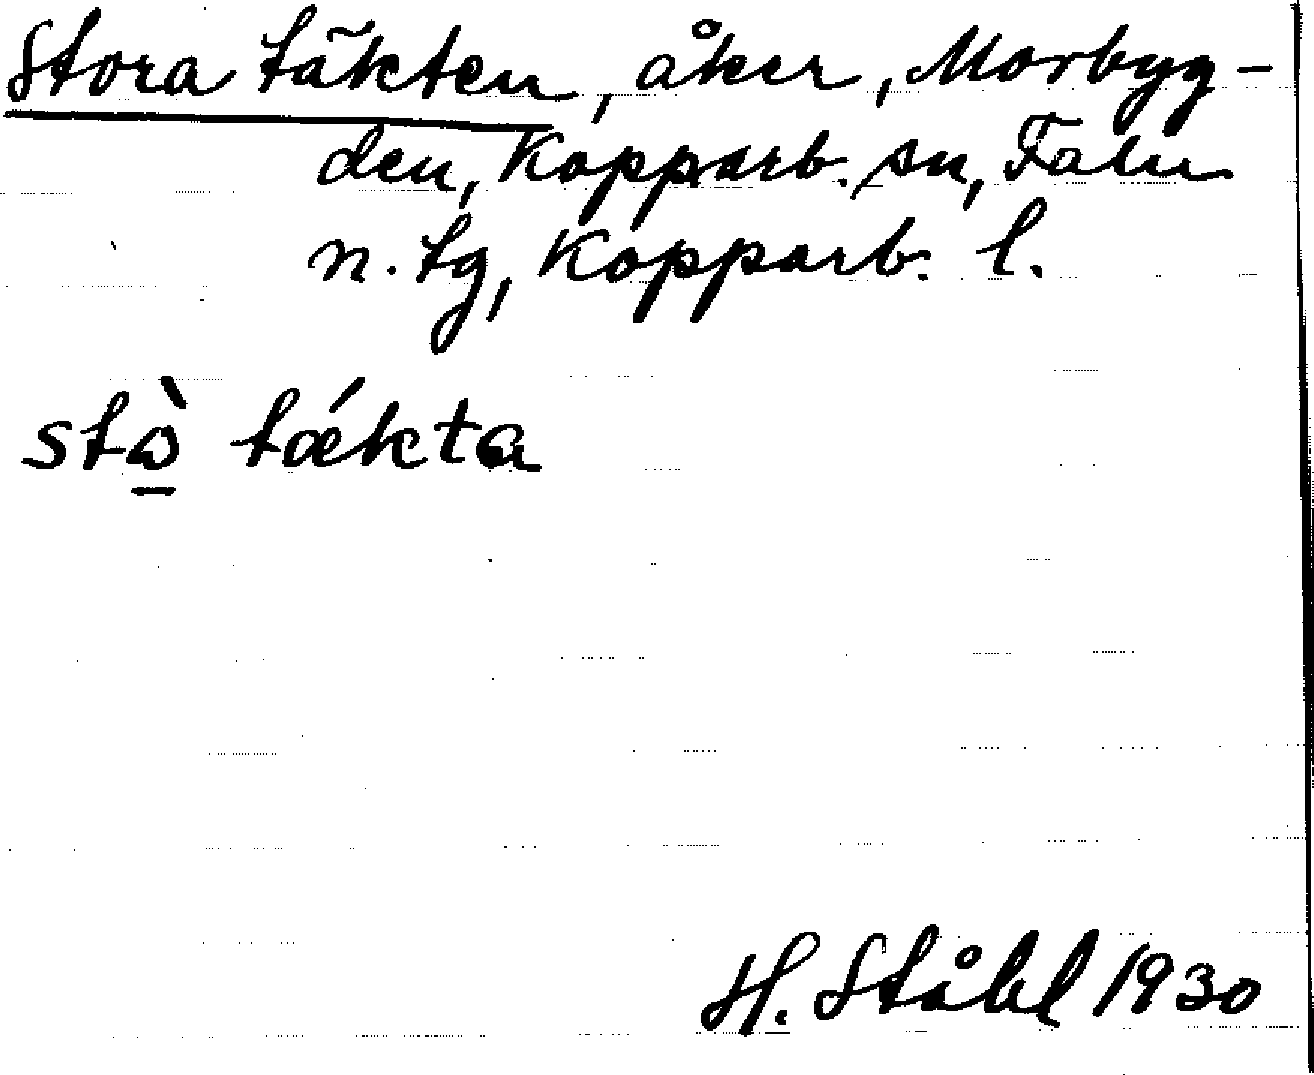 Stora täkten, åker, Morbyg-
den, Kopparb. sn, Falu
n. tg, Kopparb. l.
stɷ̱̀ tǽkta
H. Ståhl 1930